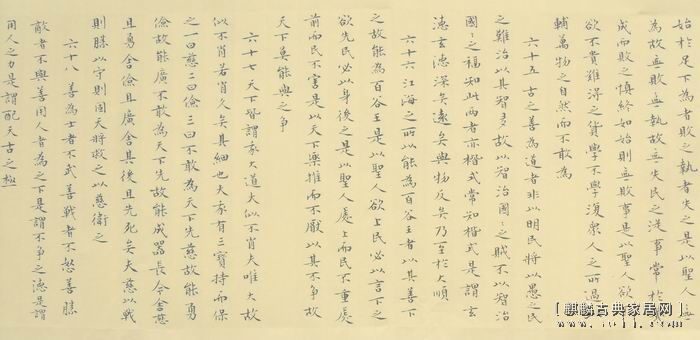 始於足下為者敗之執者失之是以聖人無
為故無敗無執故無失民之從事常於
成而敗之慎終如始則無敗事是以聖人欲
欲不貴難得之貨學不學復眾人之所過
輔萬物之自然而不敢為
六十五古之善為道者非以明民將以愚之民
之難治以其智多故以智治國之賊不以智治
國之福知此兩者亦楷式常知楷式是謂玄
德玄德深矣遠矣與物反矣乃至於大順
六十六江海之所以能為百谷王者以其善下
之故能為百谷王是以聖人欲上民必以言下之
欲先民必以身後之是以聖人處上而民不重處
前而民不害是以天下樂推而不厭以其不爭故
天下莫能與之爭
六十七天下皆謂我大道大似不肖夫唯大故
似不肖若肖久矣其細也夫我有三寶持而保
之一曰慈二曰儉三曰不敢為天下先慈故能勇
儉故能廣不敢為天下先故能成器長今舍慈
且勇舍儉且廣舍其後且先死矣夫慈以戰
則勝以守則固天將救之以慈衛之
六十八善為士者不武善戰者不怒善勝
敵者不與善用人者為之下是謂不爭之德是謂
用人之力是謂配天古之極
［麒麟古典家居网］